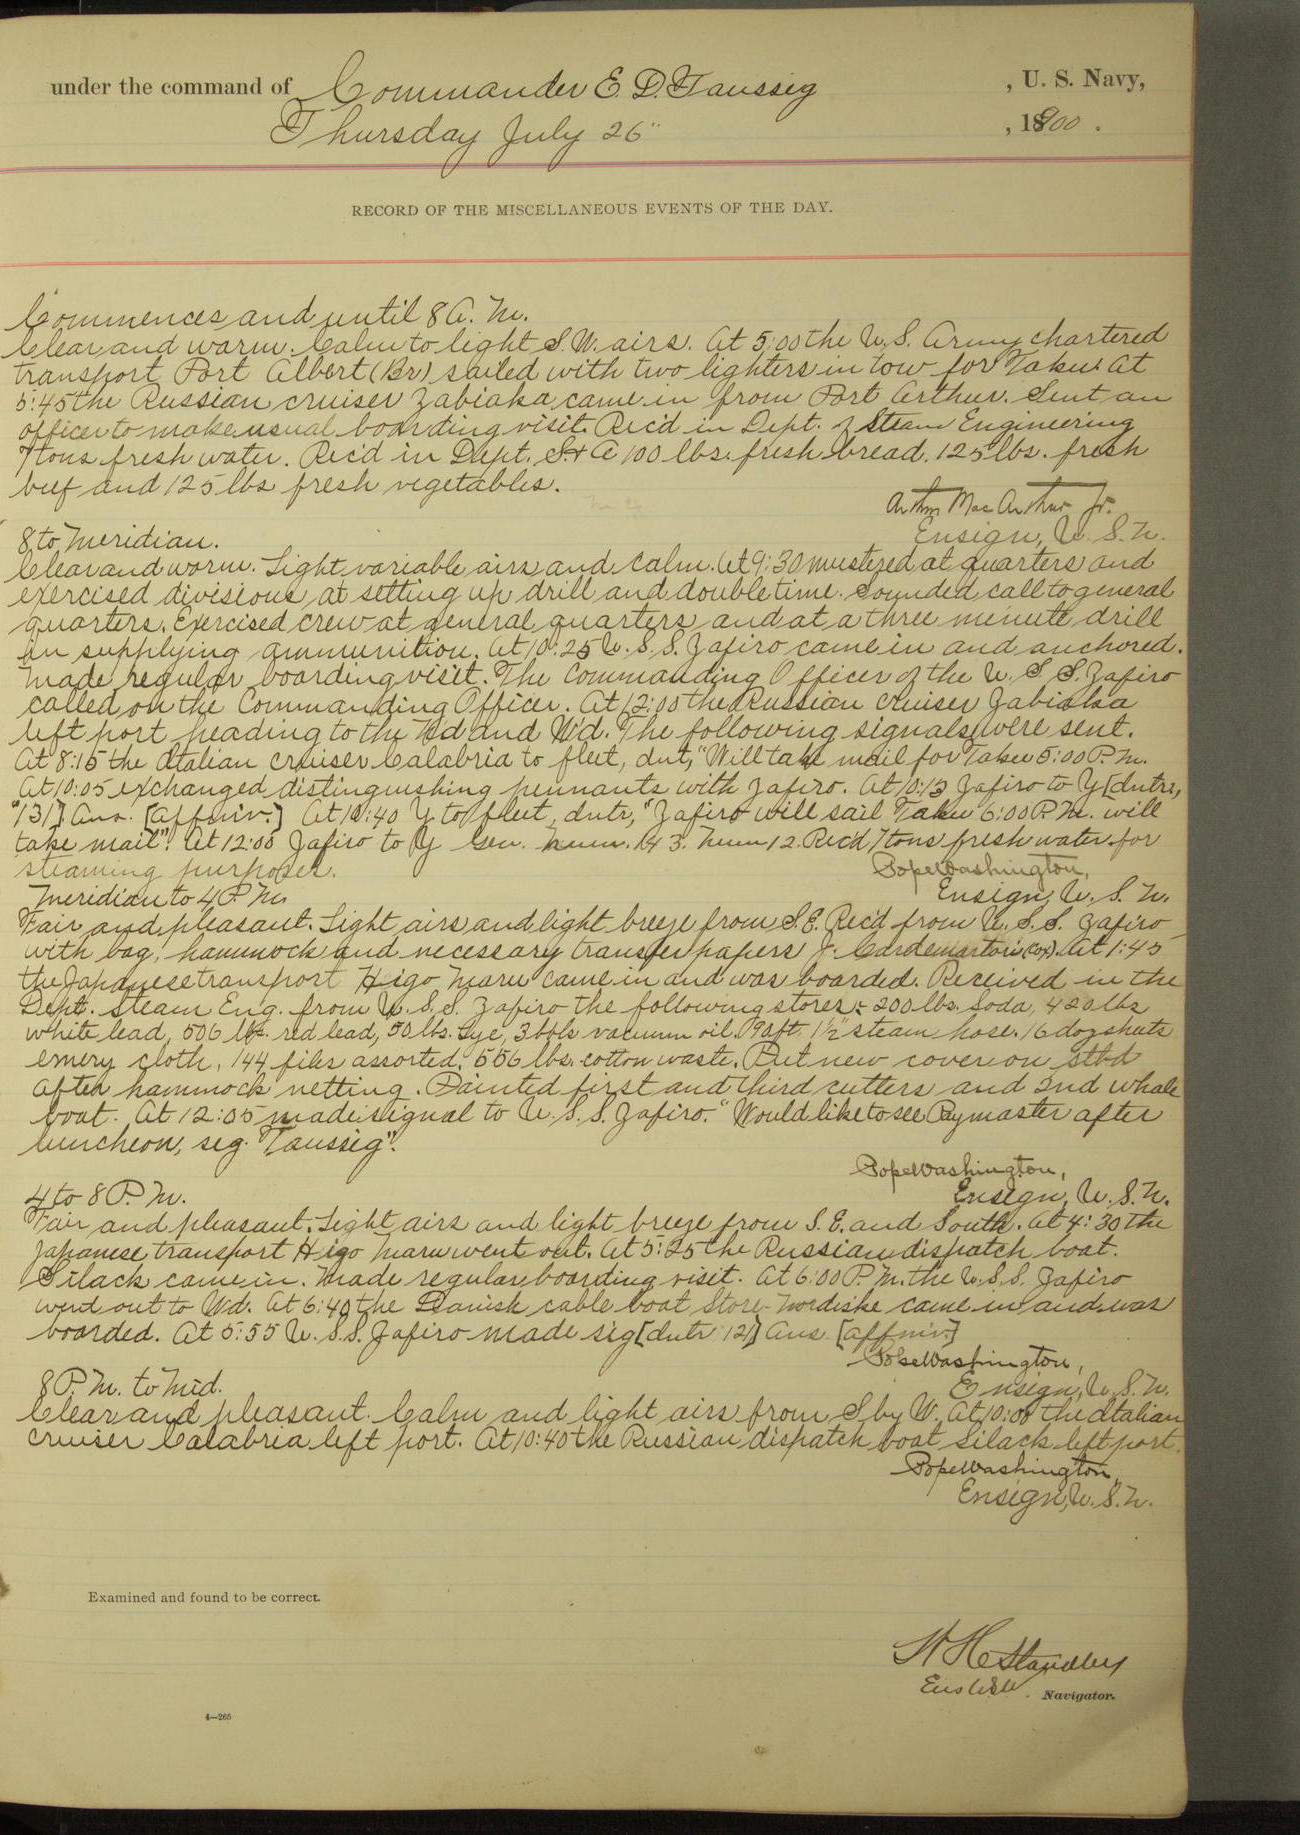 under the command of Commander E. D. Taussig , U. S. Navy,
Thursday July 26" , 1900 .
RECORD OF THE MISCELLANEOUS EVENTS OF THE DAY.
Commences and until 8 A. M.
Clear and warm. Calm to light S. W. airs. At 5:00 the U. S. Army chartered
transport Port Albert (Br) sailed with two lighters in tow for Taku. At
5:45 the Russian cruiser Zabiaka came in from Port Arthur. Sent an
officer to make usual boarding visit. Rec'd in Dept. of Steam Engineering
7 tons fresh water. Rec'd in Dept. S. & A 100 lbs. fresh bread. 125 lbs. fresh
beef and 125 lbs fresh vegetables.
Arthur MacArthur Jr.
Ensign, U. S. N.
8 to Meridian.
Clear and warm. Light variable airs and calm. At 9:30 mustered at quarters and
exercised divisions at setting up drill and double time. Sounded call to general
quarters. Exercised crew at general quarters and at a three minute drill
in supplying ammunition. At 10:25 U. S. S. Zafiro came in and anchored.
Made regular boarding visit. The Commanding Officer of the U. S. S. Zafiro
called on the Commanding Officer. At 12:00 the Russian cruiser Zabiaka
left port heading to the Nd and Wd. The following signals were sent.
At 8:15 the Italian cruiser Calabria to fleet, dut, "Will take mail for Taku 5:00 P. M.
At 10:05 exchanged distinguishing pennants with Zafiro. At 10:13 Zafiro to Y [dutr,
"131] Ans. [affmiv.] At 10:40 Y to fleet, dutr, "Zafiro will sail Taku 6:00 P. M. will
take mail". At 12:00 Zafiro to Y Gen. 143. 12. Rec'd 7 tons fresh water for
steaming purposes.
Pope Washington,
Ensign, U. S. N.
Meridian to 4 P. M.
Fair and pleasant. Light airs and light breeze from S. E. Rec'd from U. S. S. Zafiro
with bag, hammock and necessary transfer papers J. (Cox). At 1:45
the Japanese transport Higo Maru came in and was boarded. Received in the
Dept. Steam Eng. from U. S. S. Zafiro the following stores: 200 lbs. Soda, 420 lbs
white lead, 506 lbs. red lead, 50 lbs. Lye, 3 bbls vacuum oil. 98 ft. 1½" steam hose. 16 doz sheets
emery cloth, 144 files assorted. 556 lbs. cotton waste. Put new cover on stbd
after hammock netting. Painted first and third cutters and 2nd whale
boat. At 12:05 made signal to U. S. S. Zafiro. "Would like to see Paymaster after
luncheon, seg. Taussig".
Pope Washington,
Ensign, U. S. N.
4 to 8 P. M.
Fair and pleasant. Light airs and light breeze from S. E. and South. At 4:30 the
Japanese transport Higo Maru went out. At 5:25 the Russian dispatch boat
Silack came in. Made regular boarding visit. At 6:00 P. M. the U. S. S. Zafiro
went out to Wd. At 6:40 the Danish cable boat Store-Nordiske came in and was
boarded. At 5:55 U. S. S. Zafiro made sig [dutr 121] Ans [affmiv.]
Pope Washington,
Ensign, U. S. N.
8 P. M. to Mid.
Clear and pleasant. Calm and light airs from S by W. At 10:00 the Italian
cruiser Calabria left port. At 10:40 the Russian dispatch boat Silack left port.
Pope Washington,
Ensign, U. S. N.
Examined and found to be correct.
W H Standley
Ens USN. Navigator.
4—265